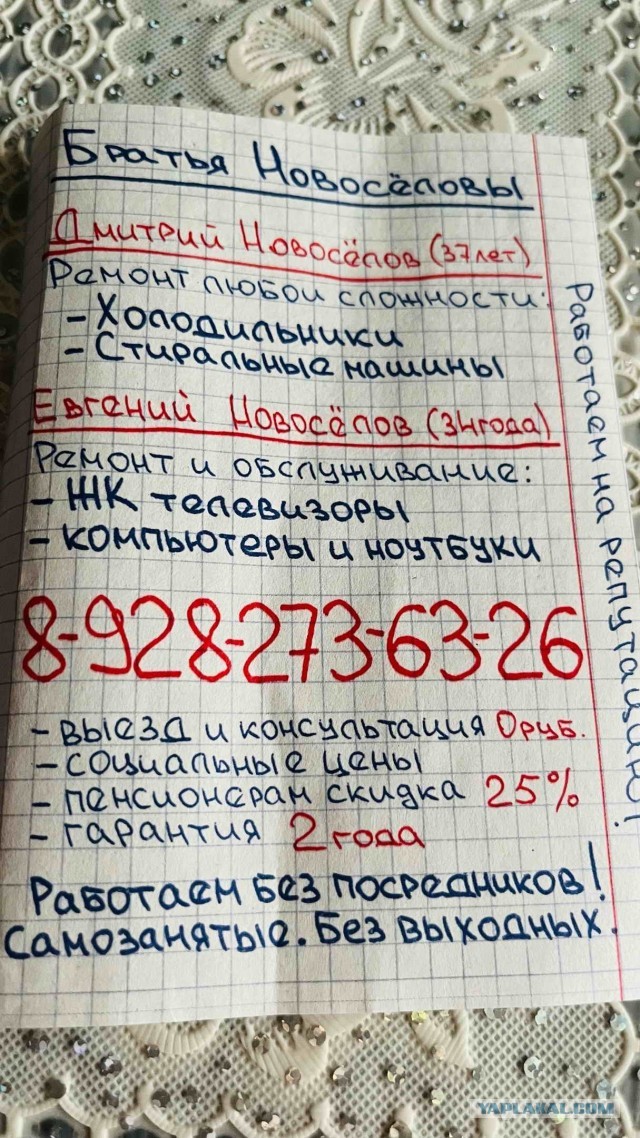 Братья Новосёловы
Дмитрий Новосёлов (37лет)
Ремонт любой сложности:
- Холодильники
- Стиральные машины
Евгений Новосёлов (34года)
Ремонт и обслуживание:
- ЖК телевизоры
- компьютеры и ноутбуки
8-928-273-63-26
- выезд и консультация 0руб.
- социальные цены
- пенсионерам скидка 25%
- гарантия 2 года
Работаем без посредников!
Самозанятые. Без выходных.
Работаем на репутацию!
YAPLAKAL.COM